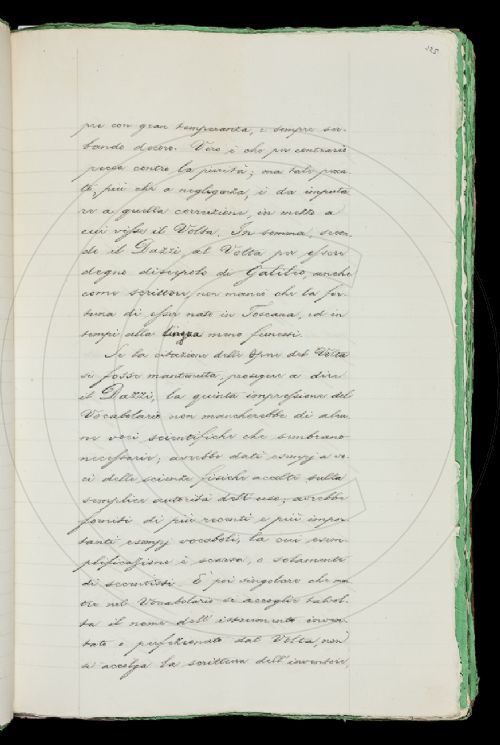 125
pre con gran temperanza, e sempre ser-
bando decoro. Vero è che per contrario
pecca contro la purità; ma tale pecca-
to, più che a negligenza, è da imputa-
re a quella corruzione, in mezzo a
cui visse il Volta. In somma, secon-
do il Dazzi, al Volta per essere
degno discepolo di Galileo, anche
come scrittore, non mancò che la for-
tuna di esser nato in Toscana, ed in
tempi alla lingua meno funesti.
Se la citazione delle Opere del Volta
si fosse mantenuta, prosegue a dire
il Dazzi, la quinta impressione del
Vocabolario non mancherebbe di alcu-
ne voci scientifiche che sembrano
necessarie; avrebbe dati esempj a vo-
ci delle scienze fisiche accolte sulla
semplice autorità dell'uso; avrebbe
forniti di più recenti e più impor-
tanti esempj vocaboli, la cui esem-
plificazione è scarsa, o solamente
di secentisti. È poi singolare che men-
tre nel Vocabolario si accoglie talvol-
ta il nome dell'istrumento inven-
tato o perfezionato dal Volta, non
si accolga la scrittura dell'inventore,